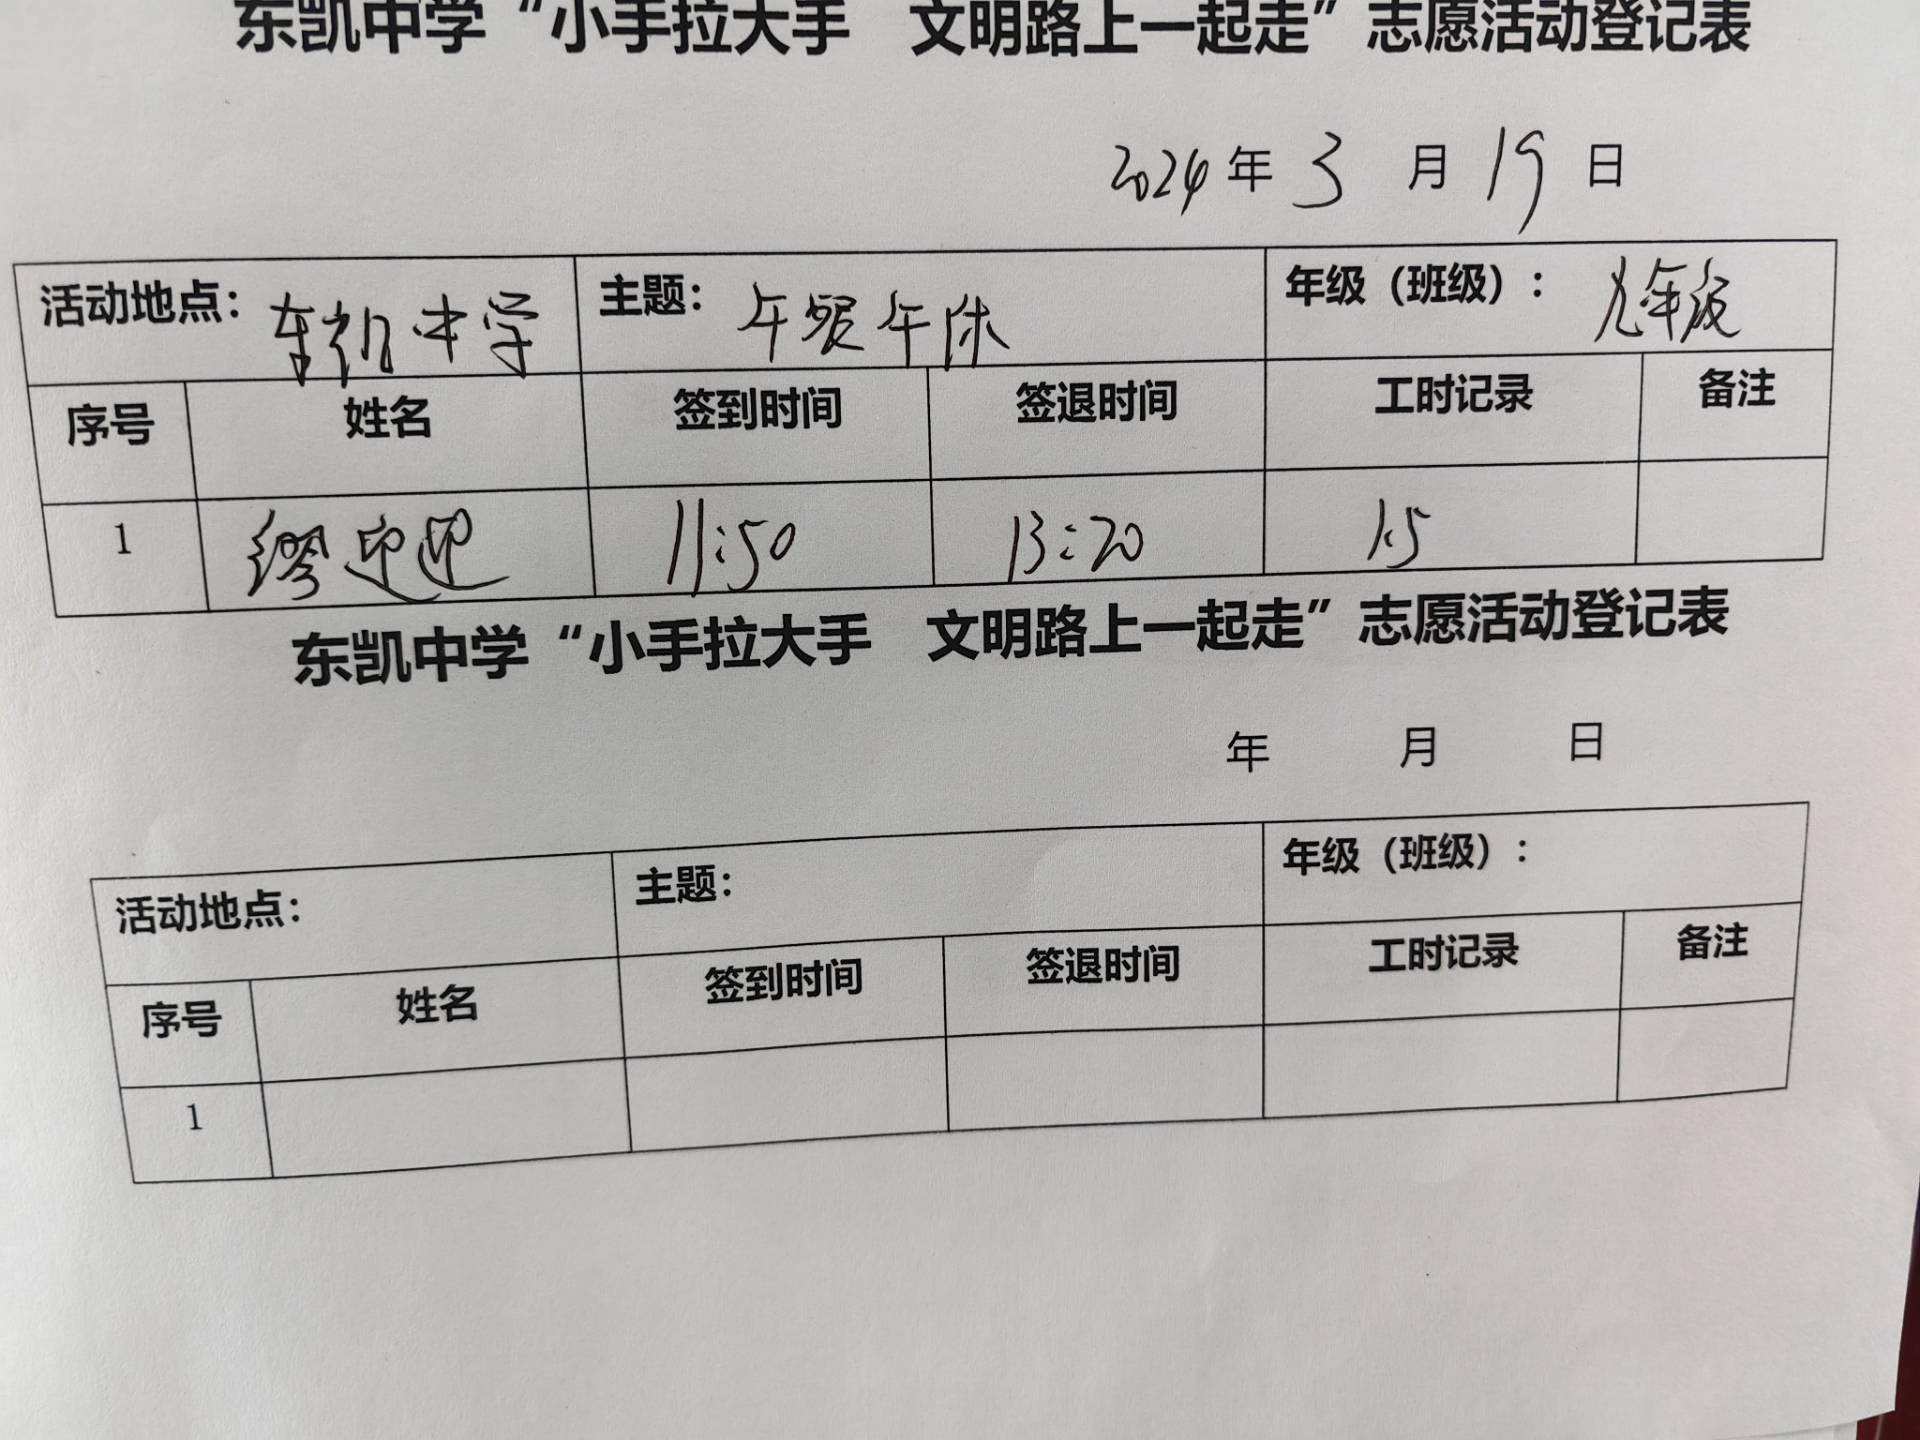 东凯中学“小手拉大手　文明路上一起走”志愿活动登记表
2024年 3 月 19 日
活动地点：东凯中学 主题：午餐午休 年级（班级）：九年级
序号 姓名 签到时间 签退时间 工时记录 备注
1 缪迎迎 11:50 13:20 1.5
东凯中学“小手拉大手　文明路上一起走”志愿活动登记表
年 月 日
活动地点： 主题： 年级（班级）：
序号 姓名 签到时间 签退时间 工时记录 备注
1